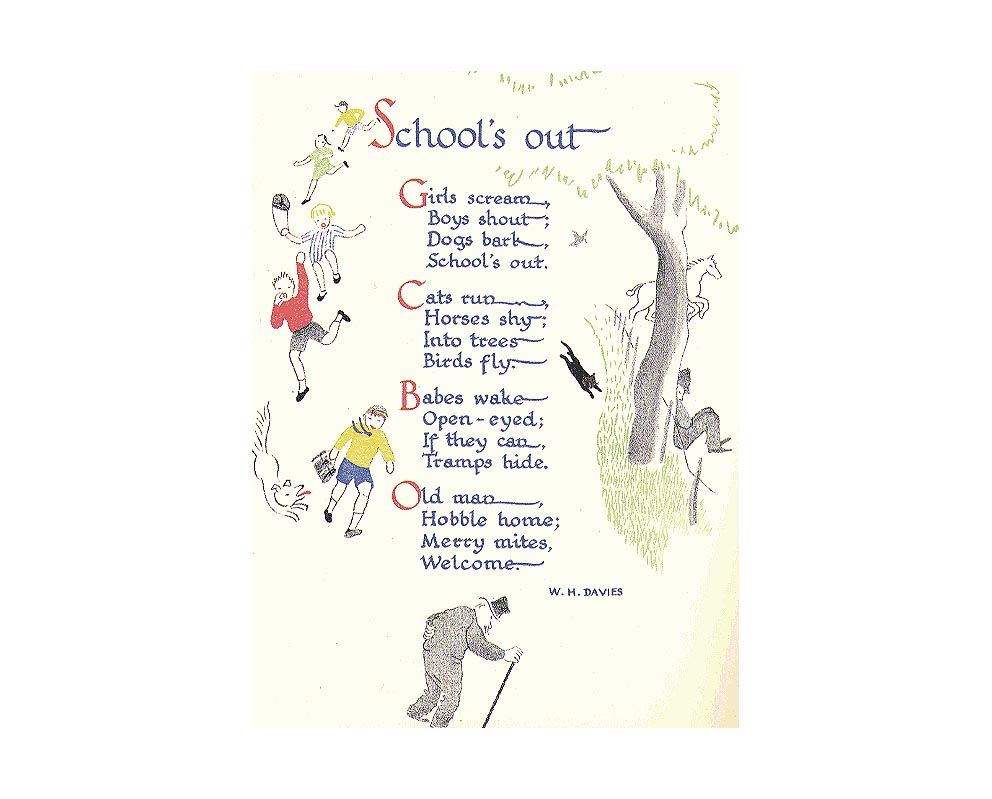 School's out
Girls scream,
Boys shout;
Dogs bark,
School's out.
Cats run,
Horses shy;
Into trees
Birds fly.
Babes wake
Open-eyed;
If they can,
Tramps hide.
Old man,
Hobble home;
Merry mites,
Welcome.
W. H. DAVIES